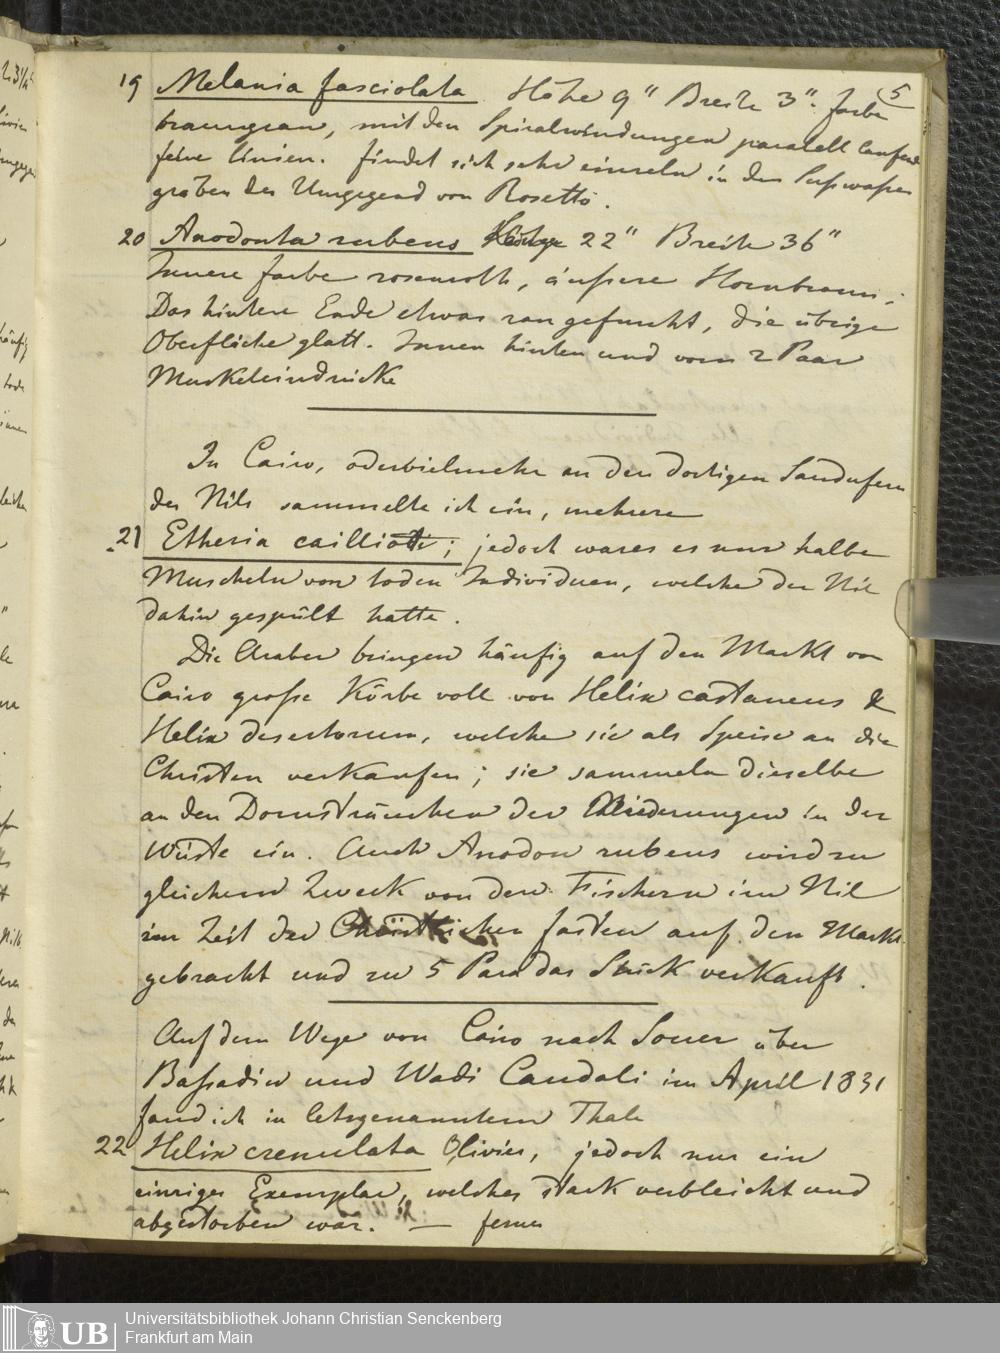 5
19 Melania fasciolata Höhe 9" Breite 3". Farbe
braungrau, mit den Spiralwindungen paralell laufende
feine Linien. findet sich sehr einzeln in den Süßwasser
gräben der Umgegend von Rosetto.
20 Anodonta rubens 22" Breite 36"
Innere Farbe rosenroth, äußere Hornbraun;
Das hintere Ende etwas rau gefurcht, die übrige
Oberfläche glatt. Innen hinten und vorn 2 Paar
Muskeleindrücke
In Cairo, oder vielmehr an den dortigen Sandufern
des Nils sammelte ich ein, mehrere
21 Etheria cailliotti; jedoch wares es nur halbe
Muscheln von toden Individuen, welche der Nil
dahin gespült hatte.
Die Araber bringen häufig auf den Markt von
Cairo große Körbe voll von Helix castaneus &
Helix desertorum, welche sie als Speise an die
Christen verkaufen; sie sammeln dieselbe
an den Dornsträuchen der Niederungen in der
Wüste ein. Auch Anodon rubens wird zu
gleichem Zweck von den Fischern im Nil
zur Zeit der Christlichen fasten auf den Markt
gebracht und zu 5 Para das Stück verkauft.
Auf dem Wege von Cairo nach Souer über
Baßadin und Wadi Candali im April 1831
fand ich in letzgenanntem Thale
22 Helix crenulata Olivier, jedoch nur ein
einziges Exemplar, welches stark verbleicht und
abgestorben war. — ferner
Universitätsbibliothek Johann Christian Senckenberg
Frankfurt am Main
UB